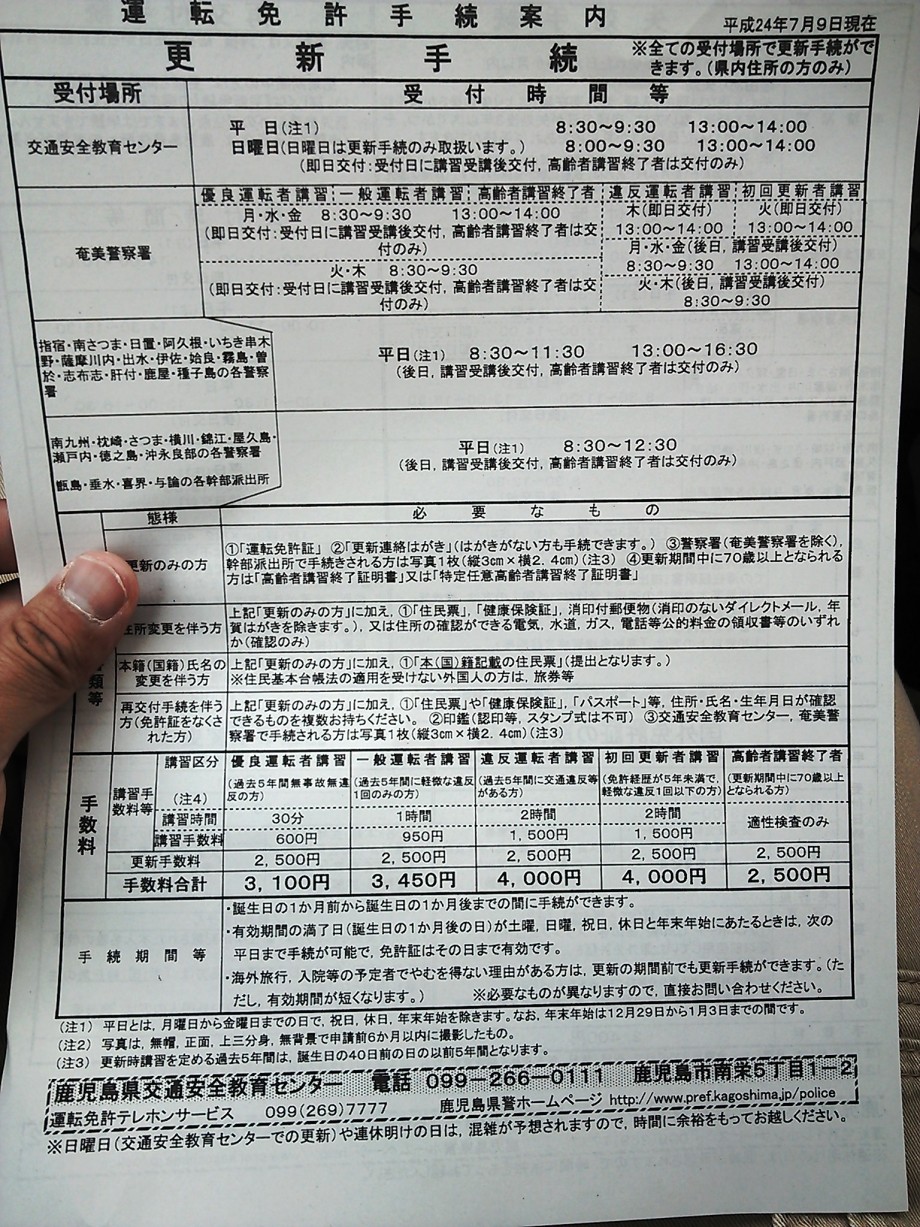 運転免許手続案内
平成24年7月9日現在
更新手続
※全ての受付場所で更新手続がで
きます。(県内住所の方のみ)
受付場所
受付時間等
交通安全教育センター
平 日(注1) 8:30～9:30 13:00～14:00
日曜日(日曜日は更新手続のみ取扱います。) 8:00～9:30 13:00～14:00
(即日交付:受付日に講習受講後交付, 高齢者講習終了者は交付のみ)
奄美警察署
優良運転者講習 一般運転者講習 高齢者講習終了者 違反運転者講習 初回更新者講習
月・水・金 8:30～9:30 13:00～14:00
(即日交付:受付日に講習受講後交付, 高齢者講習終了者は交
付のみ)
火・木 8:30～9:30
(即日交付:受付日に講習受講後交付, 高齢者講習終了者は交
付のみ)
木(即日交付) 火(即日交付)
13:00～14:00 13:00～14:00
月・水・金(後日, 講習受講後交付)
8:30～9:30 13:00～14:00
火・木(後日, 講習受講後交付)
8:30～9:30
指宿・南さつま・日置・阿久根・いちき串木
野・薩摩川内・出水・伊佐・姶良・霧島・曽
於・志布志・肝付・鹿屋・種子島の各警察
署
平日(注1) 8:30～11:30 13:00～16:30
(後日, 講習受講後交付, 高齢者講習終了者は交付のみ)
南九州・枕崎・さつま・横川・錦江・屋久島・
瀬戸内・徳之島・沖永良部の各警察署
甑島・垂水・喜界・与論の各幹部派出所
平日(注1) 8:30～12:30
(後日, 講習受講後交付, 高齢者講習終了者は交付のみ)
態様
必要なもの
更新のみの方
①「運転免許証」 ②「更新連絡はがき」(はがきがない方も手続できます。) ③警察署(奄美警察署を除く),
幹部派出所で手続きされる方は写真1枚(縦3cm×横2. 4cm)(注3) ④更新期間中に70歳以上となられる
方は「高齢者講習終了証明書」又は「特定任意高齢者講習終了証明書」
住所変更を伴う方
上記「更新のみの方」に加え, ①「住民票」, 「健康保険証」, 消印付郵便物(消印のないダイレクトメール, 年
賀はがきを除きます。), 又は住所の確認ができる電気, 水道, ガス, 電話等公的料金の領収書等のいずれ
か(確認のみ)
類等
本籍(国籍)氏名の
変更を伴う方
上記「更新のみの方」に加え, ①「本(国)籍記載の住民票」(提出となります。)
※住民基本台帳法の適用を受けない外国人の方は, 旅券等
再交付手続を伴う
方(免許証をなくさ
れた方)
上記「更新のみの方」に加え, ①「住民票」や「健康保険証」, 「パスポート」等, 住所・氏名・生年月日が確認
できるものを複数お持ちください。 ②印鑑(認印等, スタンプ式は不可) ③交通安全教育センター, 奄美警
察署で手続される方は写真1枚(縦3cm×横2. 4cm)(注3)
手数料
講習手
数料等
講習区分
(注4)
優良運転者講習 一般運転者講習 違反運転者講習 初回更新者講習 高齢者講習終了者
(過去5年間無事故無違
反の方)
(過去5年間に軽微な違反
1回のみの方)
(過去5年間に交通違反等
がある方)
(免許経歴が5年未満で,
軽微な違反1回以下の方)
(更新期間中に70歳以上
となられる方)
講習時間 30分 1時間 2時間 2時間 適性検査のみ
講習手数料 600円 950円 1, 500円 1, 500円
更新手数料 2, 500円 2, 500円 2, 500円 2, 500円 2, 500円
手数料合計 3, 100円 3, 450円 4, 000円 4, 000円 2, 500円
手続期間等
・誕生日の1か月前から誕生日の1か月後までの間に手続ができます。
・有効期間の満了日(誕生日の1か月後の日)が土曜, 日曜, 祝日, 休日と年末年始にあたるときは, 次の
平日まで手続が可能で, 免許証はその日まで有効です。
・海外旅行, 入院等の予定者でやむを得ない理由がある方は, 更新の期間前でも更新手続ができます。(た
だし, 有効期間が短くなります。) ※必要なものが異なりますので, 直接お問い合わせください。
(注1) 平日とは, 月曜日から金曜日までの日で, 祝日, 休日, 年末年始を除きます。なお, 年末年始は12月29日から1月3日までの間です。
(注2) 写真は, 無帽, 正面, 上三分身, 無背景で申請前6か月以内に撮影したもの。
(注3) 更新時講習を定める過去5年間は, 誕生日の40日前の日の以前5年間となります。
鹿児島県交通安全教育センター 電話 099－266－0111 鹿児島市南栄5丁目1－2
運転免許テレホンサービス 099(269)7777 鹿児島県警ホームページ http://www.pref.kagoshima.jp/police
※日曜日(交通安全教育センターでの更新)や連休明けの日は, 混雑が予想されますので, 時間に余裕をもってお越しください。